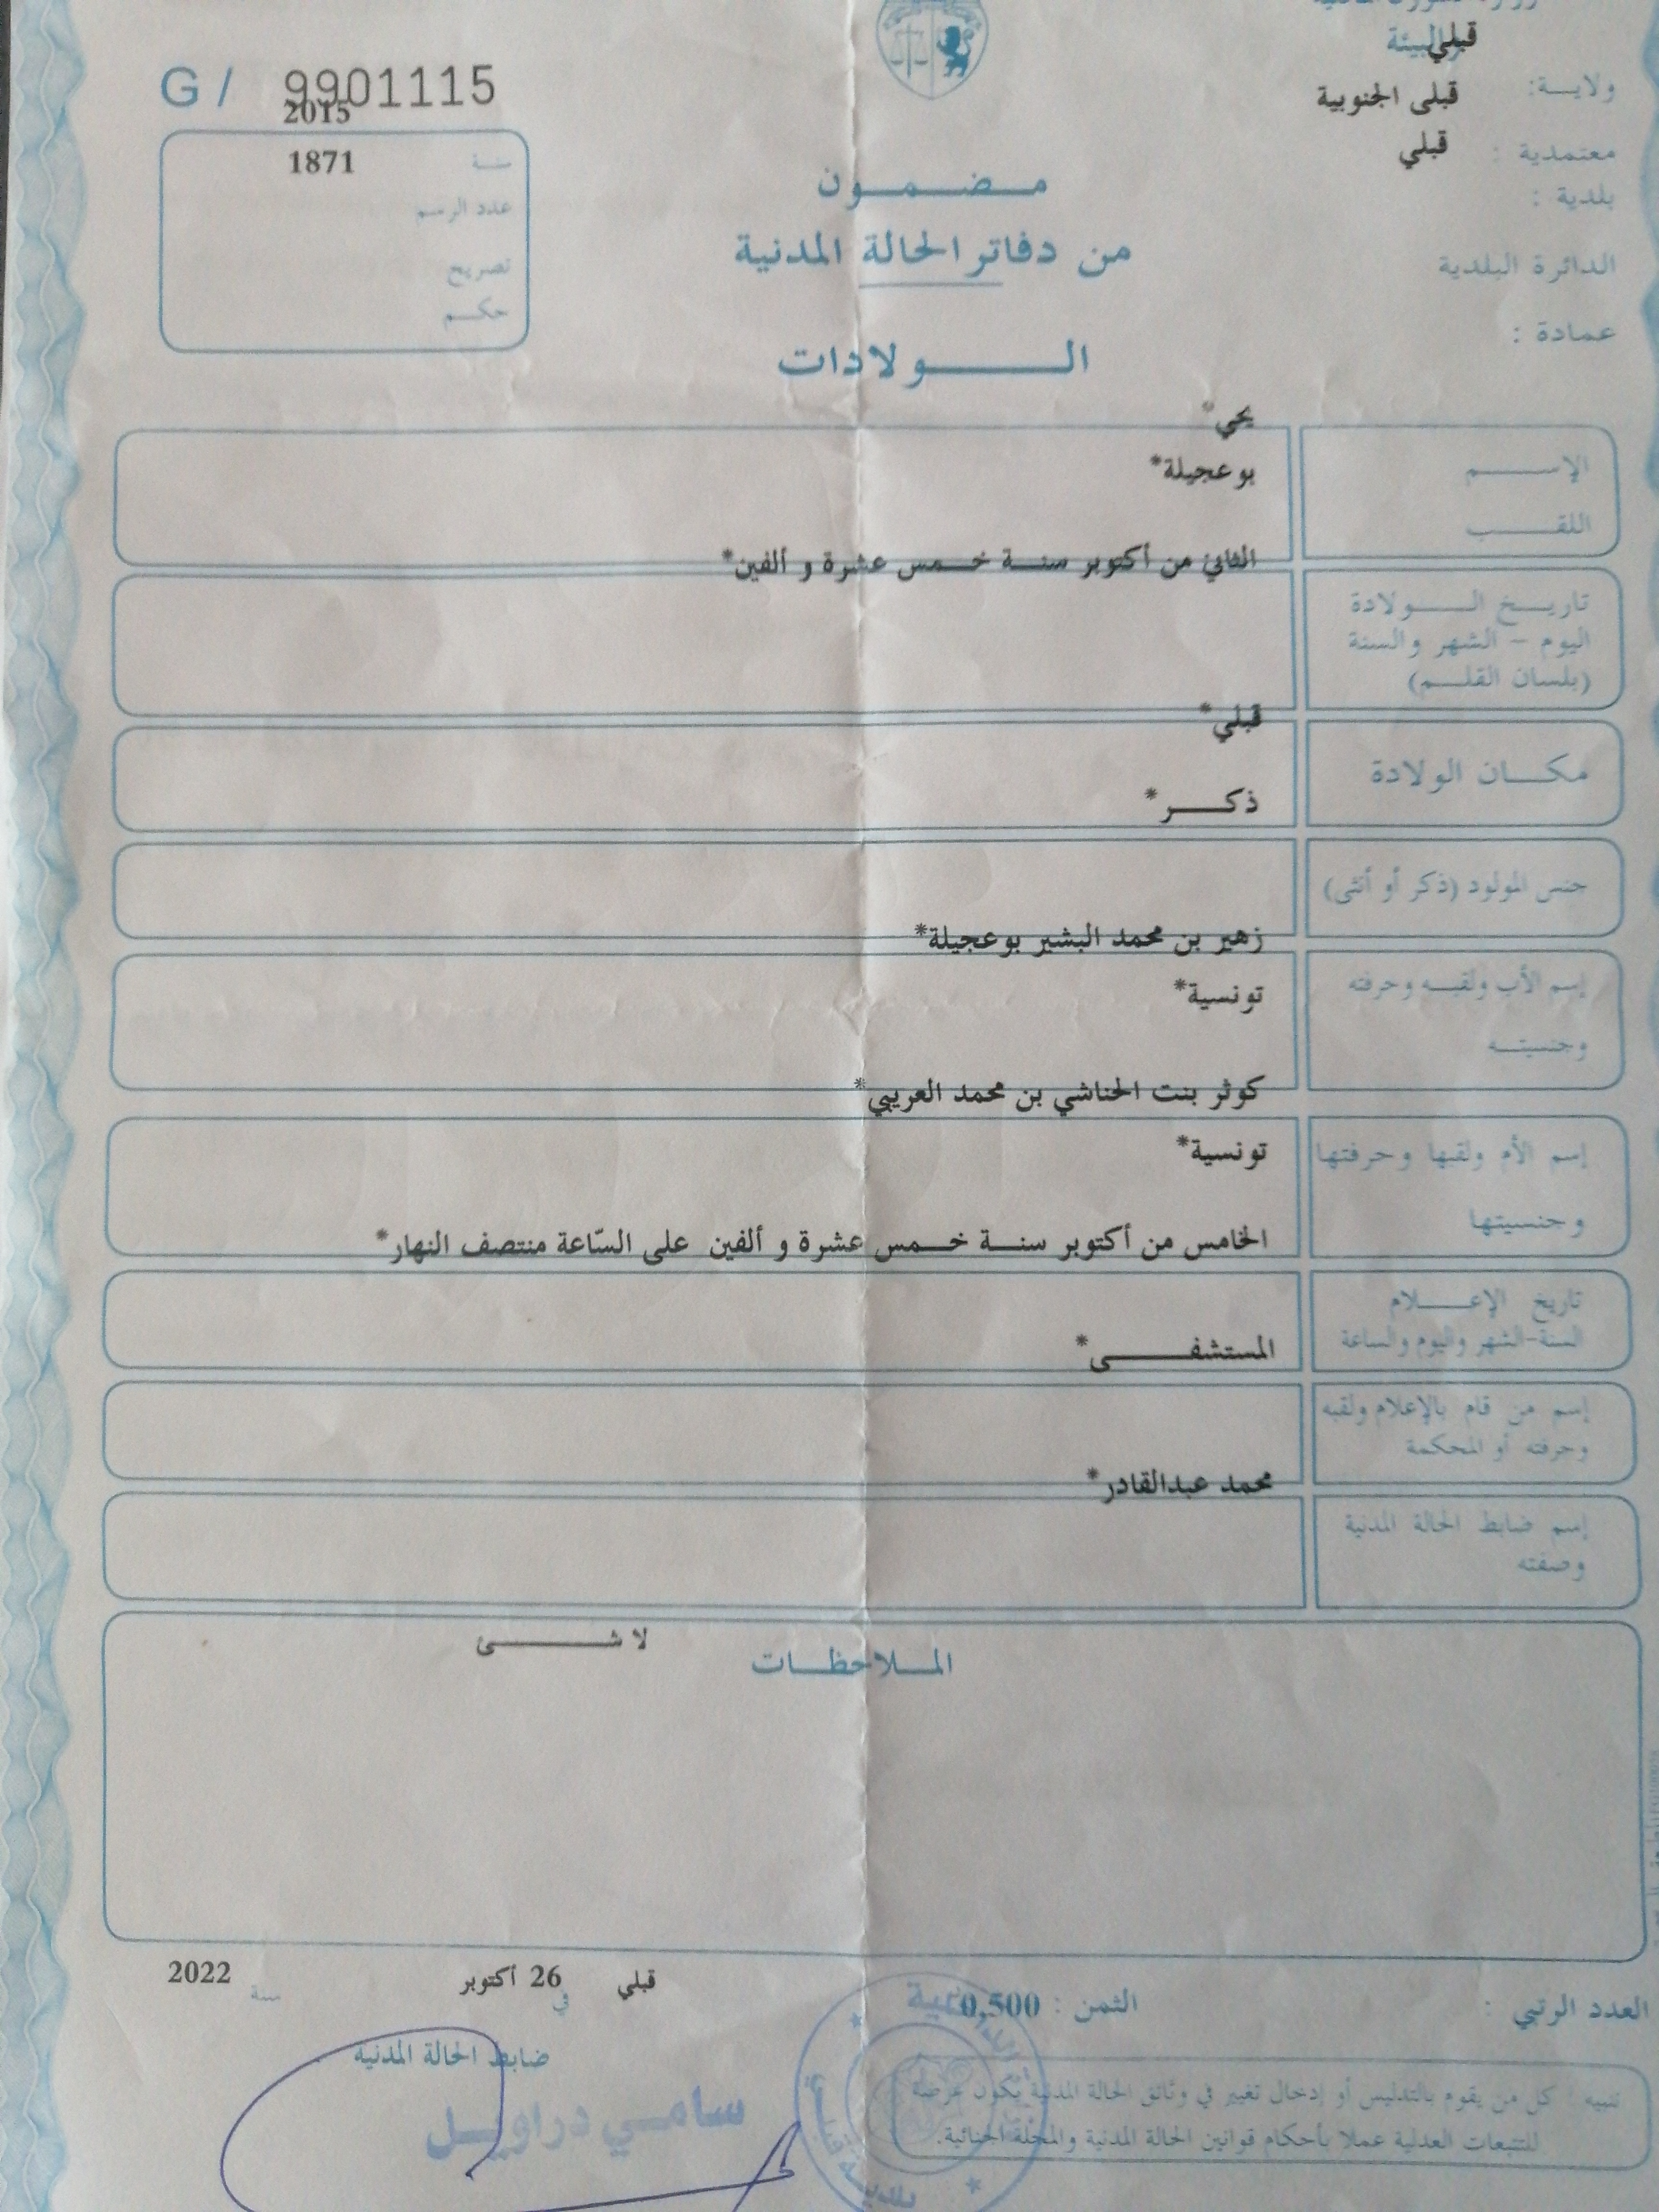 والبيئة
قبلي
G / 9901115
2015
ولايـــة:
قبلى الجنوبية
معتمدية :
قبلي
بلدية :
الدائرة البلدية
عمادة :
سنـة
1871
عدد الرسم
تصريح
حكـــم
مـــضـــمـــون
من دفاتر الحالة المدنية
الـــــولادات
يحي*
الإســـــم
بوعجيلة*
اللقـــــب
الثاني من أكتوبر سنـــة خـــمس عشرة و ألفين*
تاريـــخ الـــــولادة
اليوم – الشهر والسنة
(بلسان القلـــم)
قبلي*
مكـــان الولادة
ذكـــر*
جنس المولود (ذكر أو أنثى)
زهير بن محمد البشير بوعجيلة*
إسم الأب ولقبـه وحرفته
تونسية*
وجنسيتـــه
كوثر بنت الحناشي بن محمد العريبي*
إسم الأم ولقبها وحرفتها
تونسية*
وجنسيتها
الخامس من أكتوبر سنـــة خـــمس عشرة و ألفين على السّاعة منتصف النهار*
تاريخ الإعـــــلام
السنة-الشهر واليوم والساعة
المستشفـــــى*
إسم من قام بالإعلام ولقبه
وحرفته أو المحكمة
محمد عبدالقادر*
إسم ضابط الحالة المدنية
وصفته
لا شـــــئ
المـــلاحظـــات
قبلي في 26 أكتوبر سنة 2022
العدد الرتبي :
الثمن : 0,500
ضابط الحالة المدنية
سامـــي دراويـــل
تنبيه : كل من يقوم بالتدليس أو إدخال تغيير في وثائق الحالة المدنية يكون عرضة
للتتبعات العدلية عملا بأحكام قوانين الحالة المدنية والمجلة الجنائية.
بلديـــة قبلـــي